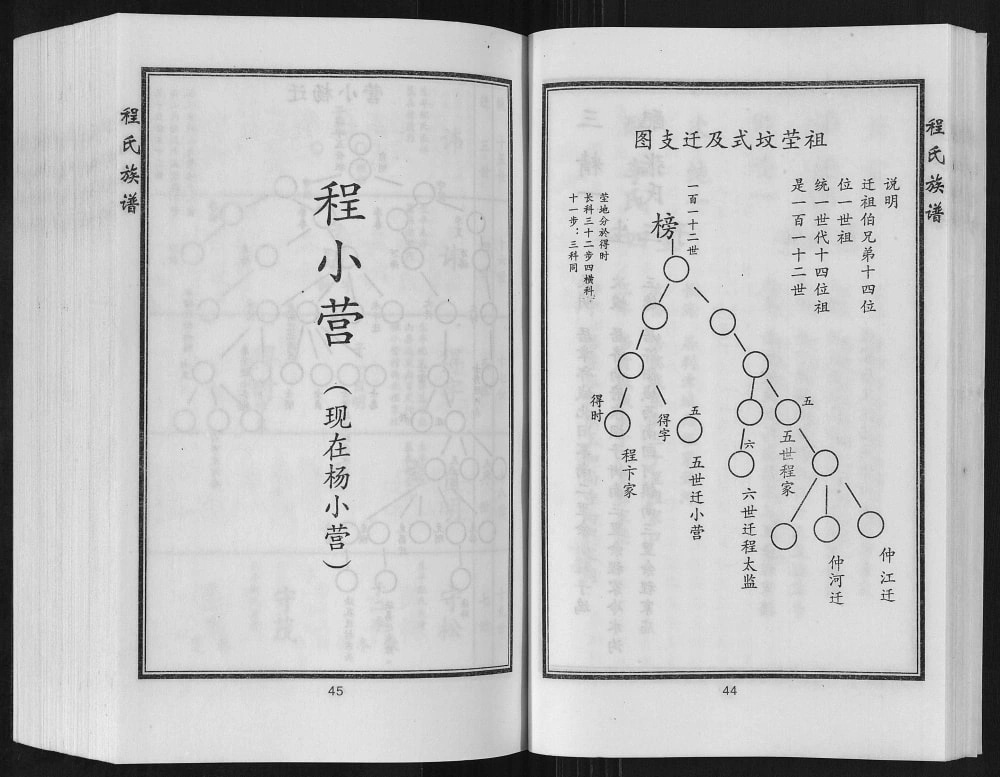 程氏族谱
祖茔坟式及迁支图
说明
迁祖伯兄弟十四位
位一世祖
统一世代十四位祖
是一百一十二世
一百一十二世
榜
茔地分於得时
长科三十二步四横科
十一步：三科同
得时
程卞家
得字
五
五世迁小营
六
六世迁程太监
五
五世程家
仲河迁
仲江迁
44
程氏族谱
程小营（现在杨小营）
45